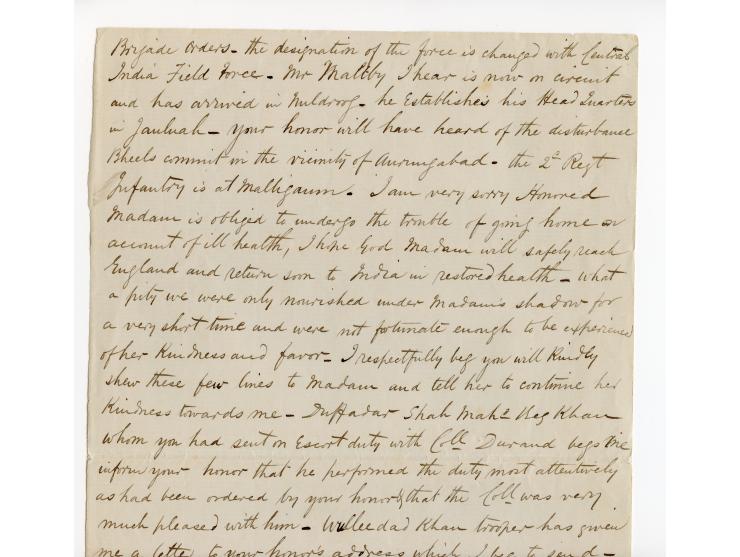 Brigade orders - the designation of the force is changed with Central
India Field Force - Mr Maltby I hear is now on circuit
and has arrived in Nuldroog - he Establishes his Head Quarters
in Jaulnah - your honor will have heard of the disturbance
Bheels commit in the vicinity of Aurungabad - the 2d Regt
Infantry is at Malligaum - I am very sorry Honored
Madam is obliged to undergo the trouble of going home on
account of ill health, I hope God Madam will safely reach
England and return soon to India in restored health - what
a pity we were only nourished under Madam's shadow for
a very short time and were not fortunate enough to be experienced
of her Kindness and favor - I respectfully beg you will Kindly
shew these few lines to Madam and tell her to continue her
Kindness towards me - Duffadar Shah Mahd Beg Khan
whom you had sent on Escort duty with Coll Durand begs me
inform your honor that he performed the duty most attentively
as had been ordered by your honor & that the Coll was very
much pleased with him - Wulleedad Khan trooper has given
me a letter to your honor's address which I beg to send -